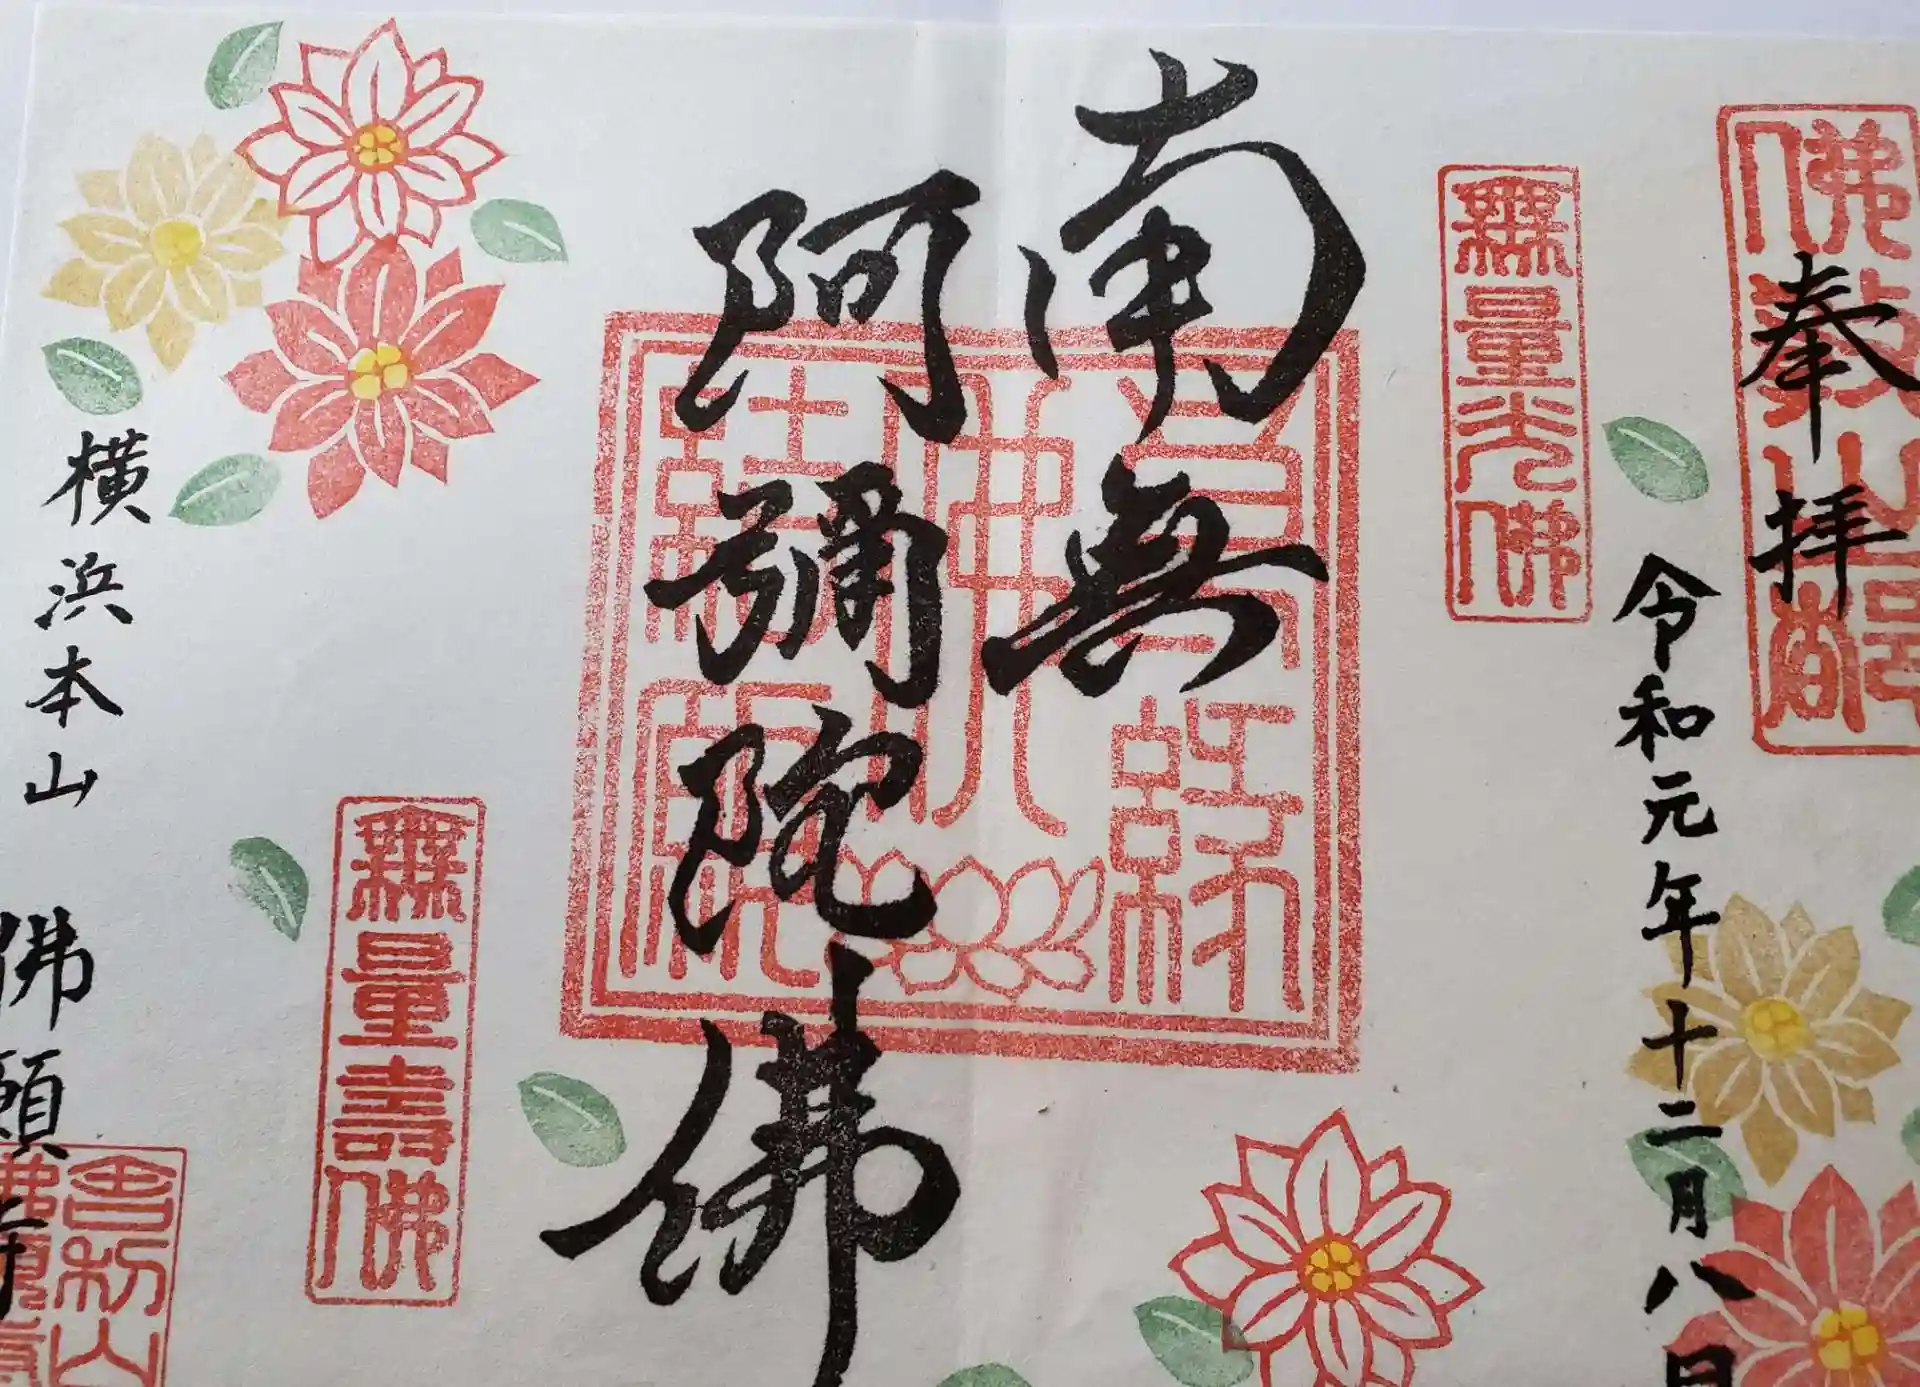 奉拝
令和元年十二月八日
無量光佛
南無
阿彌陀佛
無量壽佛
横浜本山 佛願寺